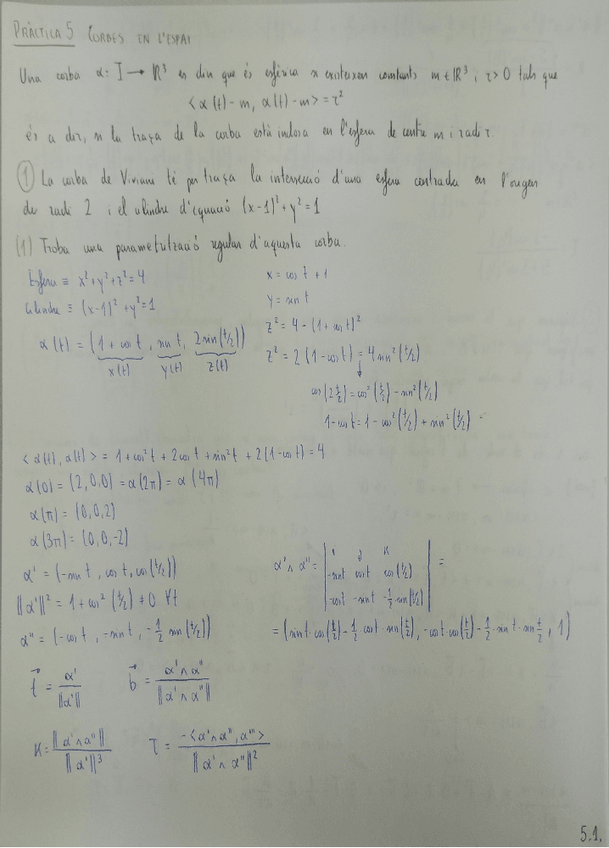 PRÀCTICA 5 CORBES EN L'ESPAI
Una corba α: I → R³ es diu que és esfèrica si existeixen constants m ∈ R³ i r > 0 tals que
< α(t) - m, α(t) - m > = r²
és a dir, si la traça de la corba està inclosa en l'esfera de centre m i radi r
① La corba de Viviani té per traça la intersecció d'una esfera centrada en l'origen
de radi 2 i el cilindre d'equació (x-1)² + y² = 1
(1) Troba una parametrització regular d'aquesta corba.
Esfera ≡ x² + y² + z² = 4
Cilindre ≡ (x-1)² + y² = 1
α(t) = (1 + cos t, sin t, 2 sin(t/2))
x(t) y(t) z(t)
x = cos t + 1
y = sin t
z² = 4 - (1 + cos t)²
z² = 2(1 - cos t) = 4 sin²(t/2)
cos(2 t/2) = cos²(t/2) - sin²(t/2)
1 - cos t = 1 - cos²(t/2) + sin²(t/2) =
< α(t), α(t) > = 1 + cos² t + 2 cos t + sin² t + 2(1 - cos t) = 4
α(0) = (2,0,0) = α(2π) = α(4π)
α(π) = (0,0,2)
α(3π) = (0,0,-2)
α' = (-sin t, cos t, cos(t/2))
||α'||² = 1 + cos²(t/2) ≠ 0 ∀t
α'' = (-cos t, -sin t, -1/2 sin(t/2))
t⃗ = α' / ||α'|| b⃗ = α' ∧ α'' / ||α' ∧ α''||
K = ||α' ∧ α''|| / ||α'||³ τ = -< α' ∧ α'', α''' > / ||α' ∧ α''||²
α' ∧ α'' = | i j k
-sin t cos t cos(t/2)
-cos t -sin t -1/2 sin(t/2) | =
= (sin t · cos(t/2) - 1/2 cos t · sin(t/2), -cos t · cos(t/2) - 1/2 · sin t · sin t/2, 1)
5.1.